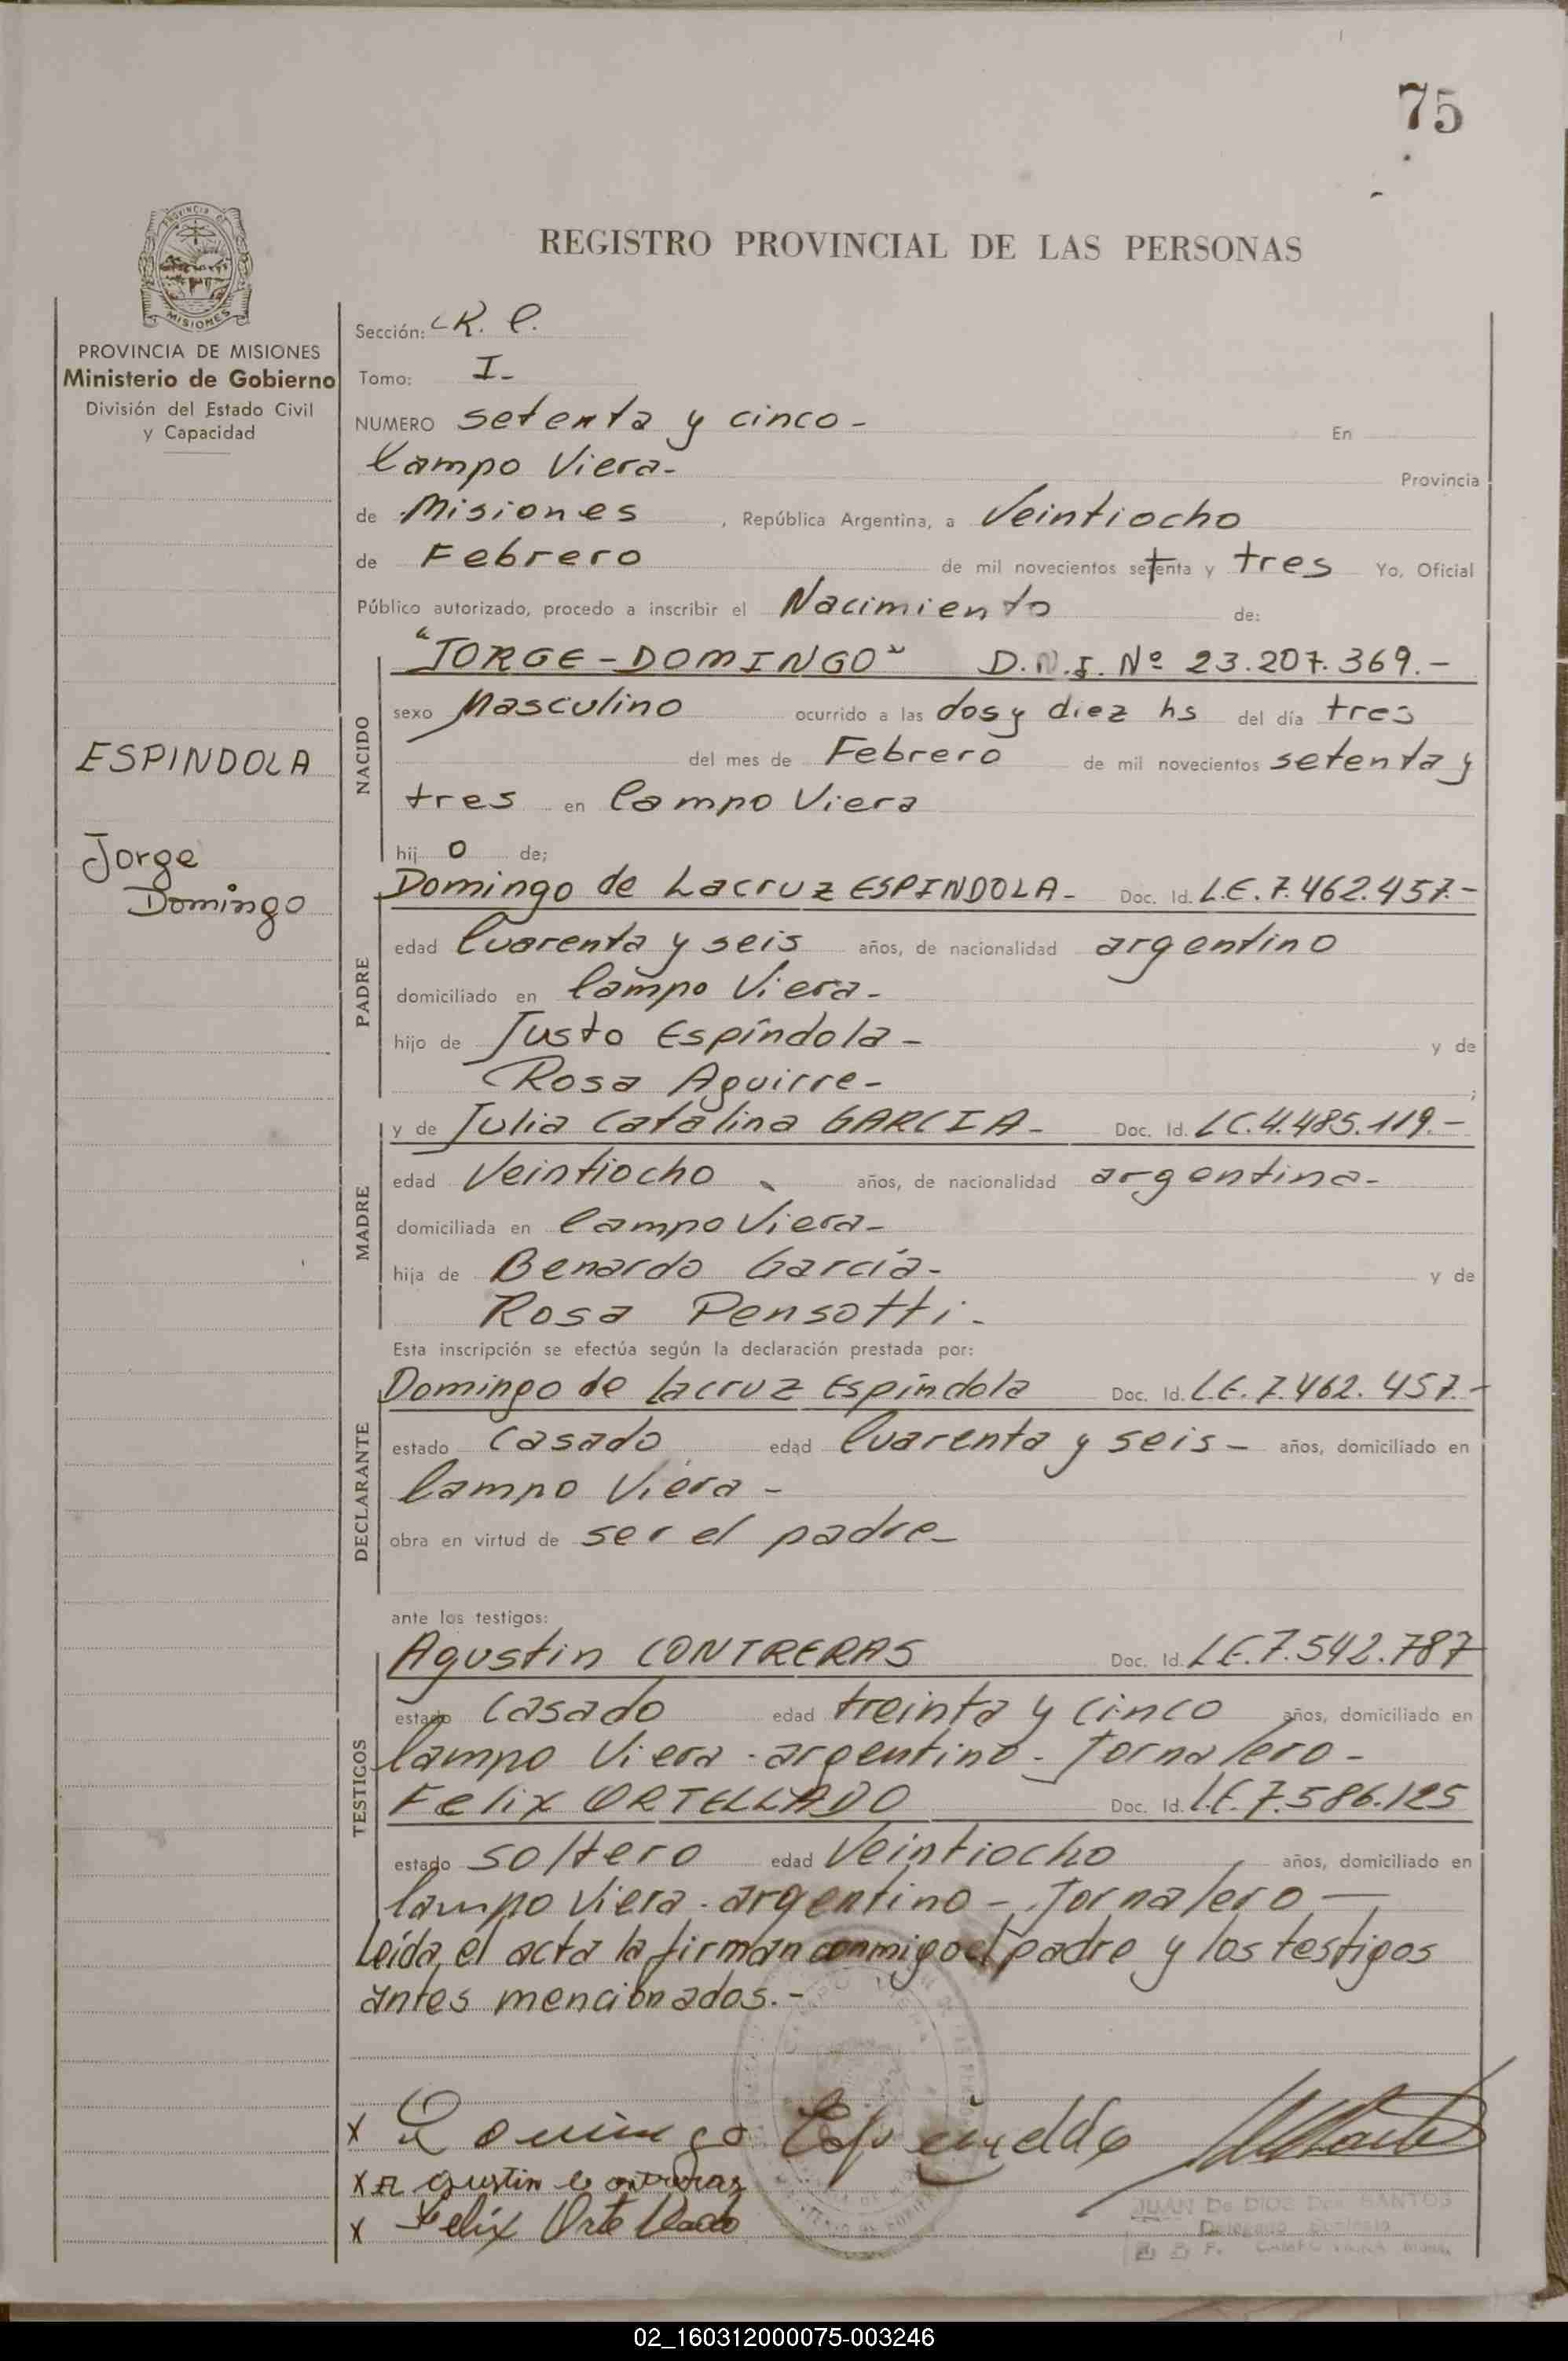 75
REGISTRO PROVINCIAL DE LAS PERSONAS
PROVINCIA DE MISIONES
Ministerio de Gobierno
División del Estado Civil
y Capacidad
ESPINDOLA
Jorge
Domingo
Sección: R. C.
Tomo: I-
NUMERO setenta y cinco - En
Campo Viera- Provincia
de Misiones, República Argentina, a Veintiocho
de Febrero de mil novecientos setenta y tres Yo, Oficial
Público autorizado, procedo a inscribir el Nacimiento de:
NACIDO
"JORGE-DOMINGO" D.N.I. Nº 23.207.369.-
sexo Masculino ocurrido a las dos y diez hs del día tres
del mes de Febrero de mil novecientos setenta y
tres en Campo Viera
hij o de;
PADRE
Domingo de Lacruz ESPINDOLA- Doc. Id. L.E. 7.462.457.-
edad Cuarenta y seis años, de nacionalidad argentino
domiciliado en Campo Viera-
hijo de Justo Espíndola- y de
Rosa Aguirre- ;
MADRE
y de Julia Catalina GARCIA- Doc. Id. LC.4.485.119.-
edad Veintiocho años, de nacionalidad argentina-
domiciliada en Campo Viera-
hija de Benardo García- y de
Rosa Pensotti-
Esta inscripción se efectúa según la declaración prestada por:
DECLARANTE
Domingo de Lacruz Espíndola Doc. Id. L.E. 7.462.457.-
estado Casado edad Cuarenta y seis- años, domiciliado en
Campo Viera-
obra en virtud de ser el padre-
ante los testigos:
TESTIGOS
Agustin CONTRERAS Doc. Id. L.E. 7.542.787
estado Casado edad treinta y cinco años, domiciliado en
Campo Viera - argentino - Jornalero -
Felix ORTELLADO Doc. Id. L.E. 7.586.125
estado soltero edad Veintiocho años, domiciliado en
Campo Viera - argentino - Jornalero -
Leída el acta la firman conmigo el padre y los testigos
antes mencionados.-
x Domingo
x Agustin Contreras
x Felix Ortellado
JUAN De DIOS Dos SANTOS
Delegado
02_160312000075-003246